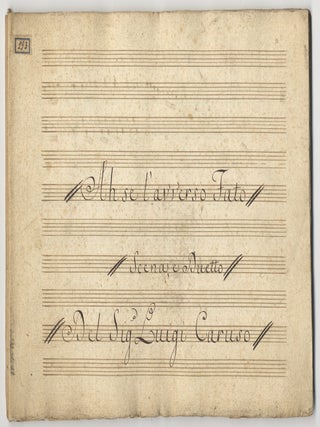 293
Ah se l'avverso Fato
Scena, e Duetto
Del Sig.r Luigi Caruso